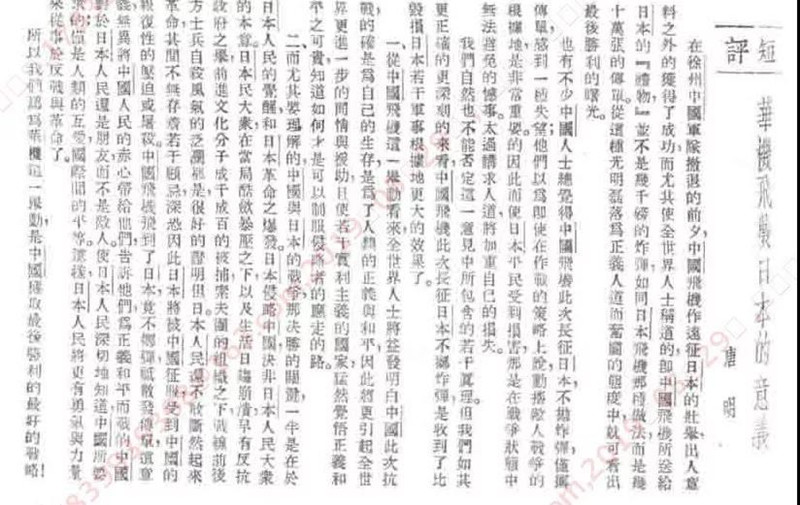 短評
華機飛襲日本的意義
唐明
在徐州中國軍隊撤退的前夕,中國飛機作遠征日本的壯舉出人意
料之外的獲得了成功,而尤其使全世界人士稱道的卽中國飛機所送給
日本的『禮物』並不是幾千磅的炸彈,如同日本飛機那種做法,而是幾
十萬張的傳單。從這種光明磊落爲正義人道而奮鬭的態度中就可看出
最後勝利的曙光。
也有不少中國人士總覺得中國飛機此次長征日本不拋炸彈僅擲
傳單感到一種失望;他們以爲卽使在作戰的策略上說動搖敵人戰爭的
根據地是非常重要的,因此而使日本平民受到損害那是在戰爭狀態中
無法避免的憾事。太過講求人道將加重自己的損失。
我們自然也不能否定這一意見中所包含的若干眞理。但我們如其
更正確的更深刻的來看中國飛機此次長征日本不擲炸彈是收到了比
毀損日本若干軍事根據地更大的效果了。
一、從中國飛機這一舉動看來全世界人士將益發明白中國此次抗
戰的確是爲自己的生存是爲了人類的正義與和平,因此將更引起全世
界更進一步的同情與援助,且使若干實利主義的國家猛然覺悟正義和
平之可貴,知道如何才是可以制服侵略者的應走的路。
二、而尤其要理解的,中國與日本的戰爭,那決勝的關鍵,一半是在於
日本人民的覺醒和日本革命之爆發。日本侵略中國決非日本人民大衆
的本意。日本民大衆在當局酷斂暴壓之下以及生活日瀕崩潰早有反抗
政府之舉,前進文化分子成千成百的被捕,索夫團的組織之下,戰線前後
方士兵自殺風氣的泛濫都是很好的證明。但日本人民還不敢斷然起來
革命,其間不無存着若干顧忌,深恐因此日本將被中國征服,受到中國的
報復性的壓迫或屠殺。中國飛機飛到了日本,竟不擲彈祇散發傳單,這意
義無異將中國人民的赤心帶給他們,告訴他們,爲正義和平而戰的中國
對於日本人民還是朋友而不是敵人,使日本人民深切地知道中國所要
求的僅是人類的互愛,國際間的平等。這樣,日本人民將更有勇氣與力量
來從事於反戰與革命了。
所以我們認爲華機這一舉動,是中國獲取最後勝利的最好的戰略!